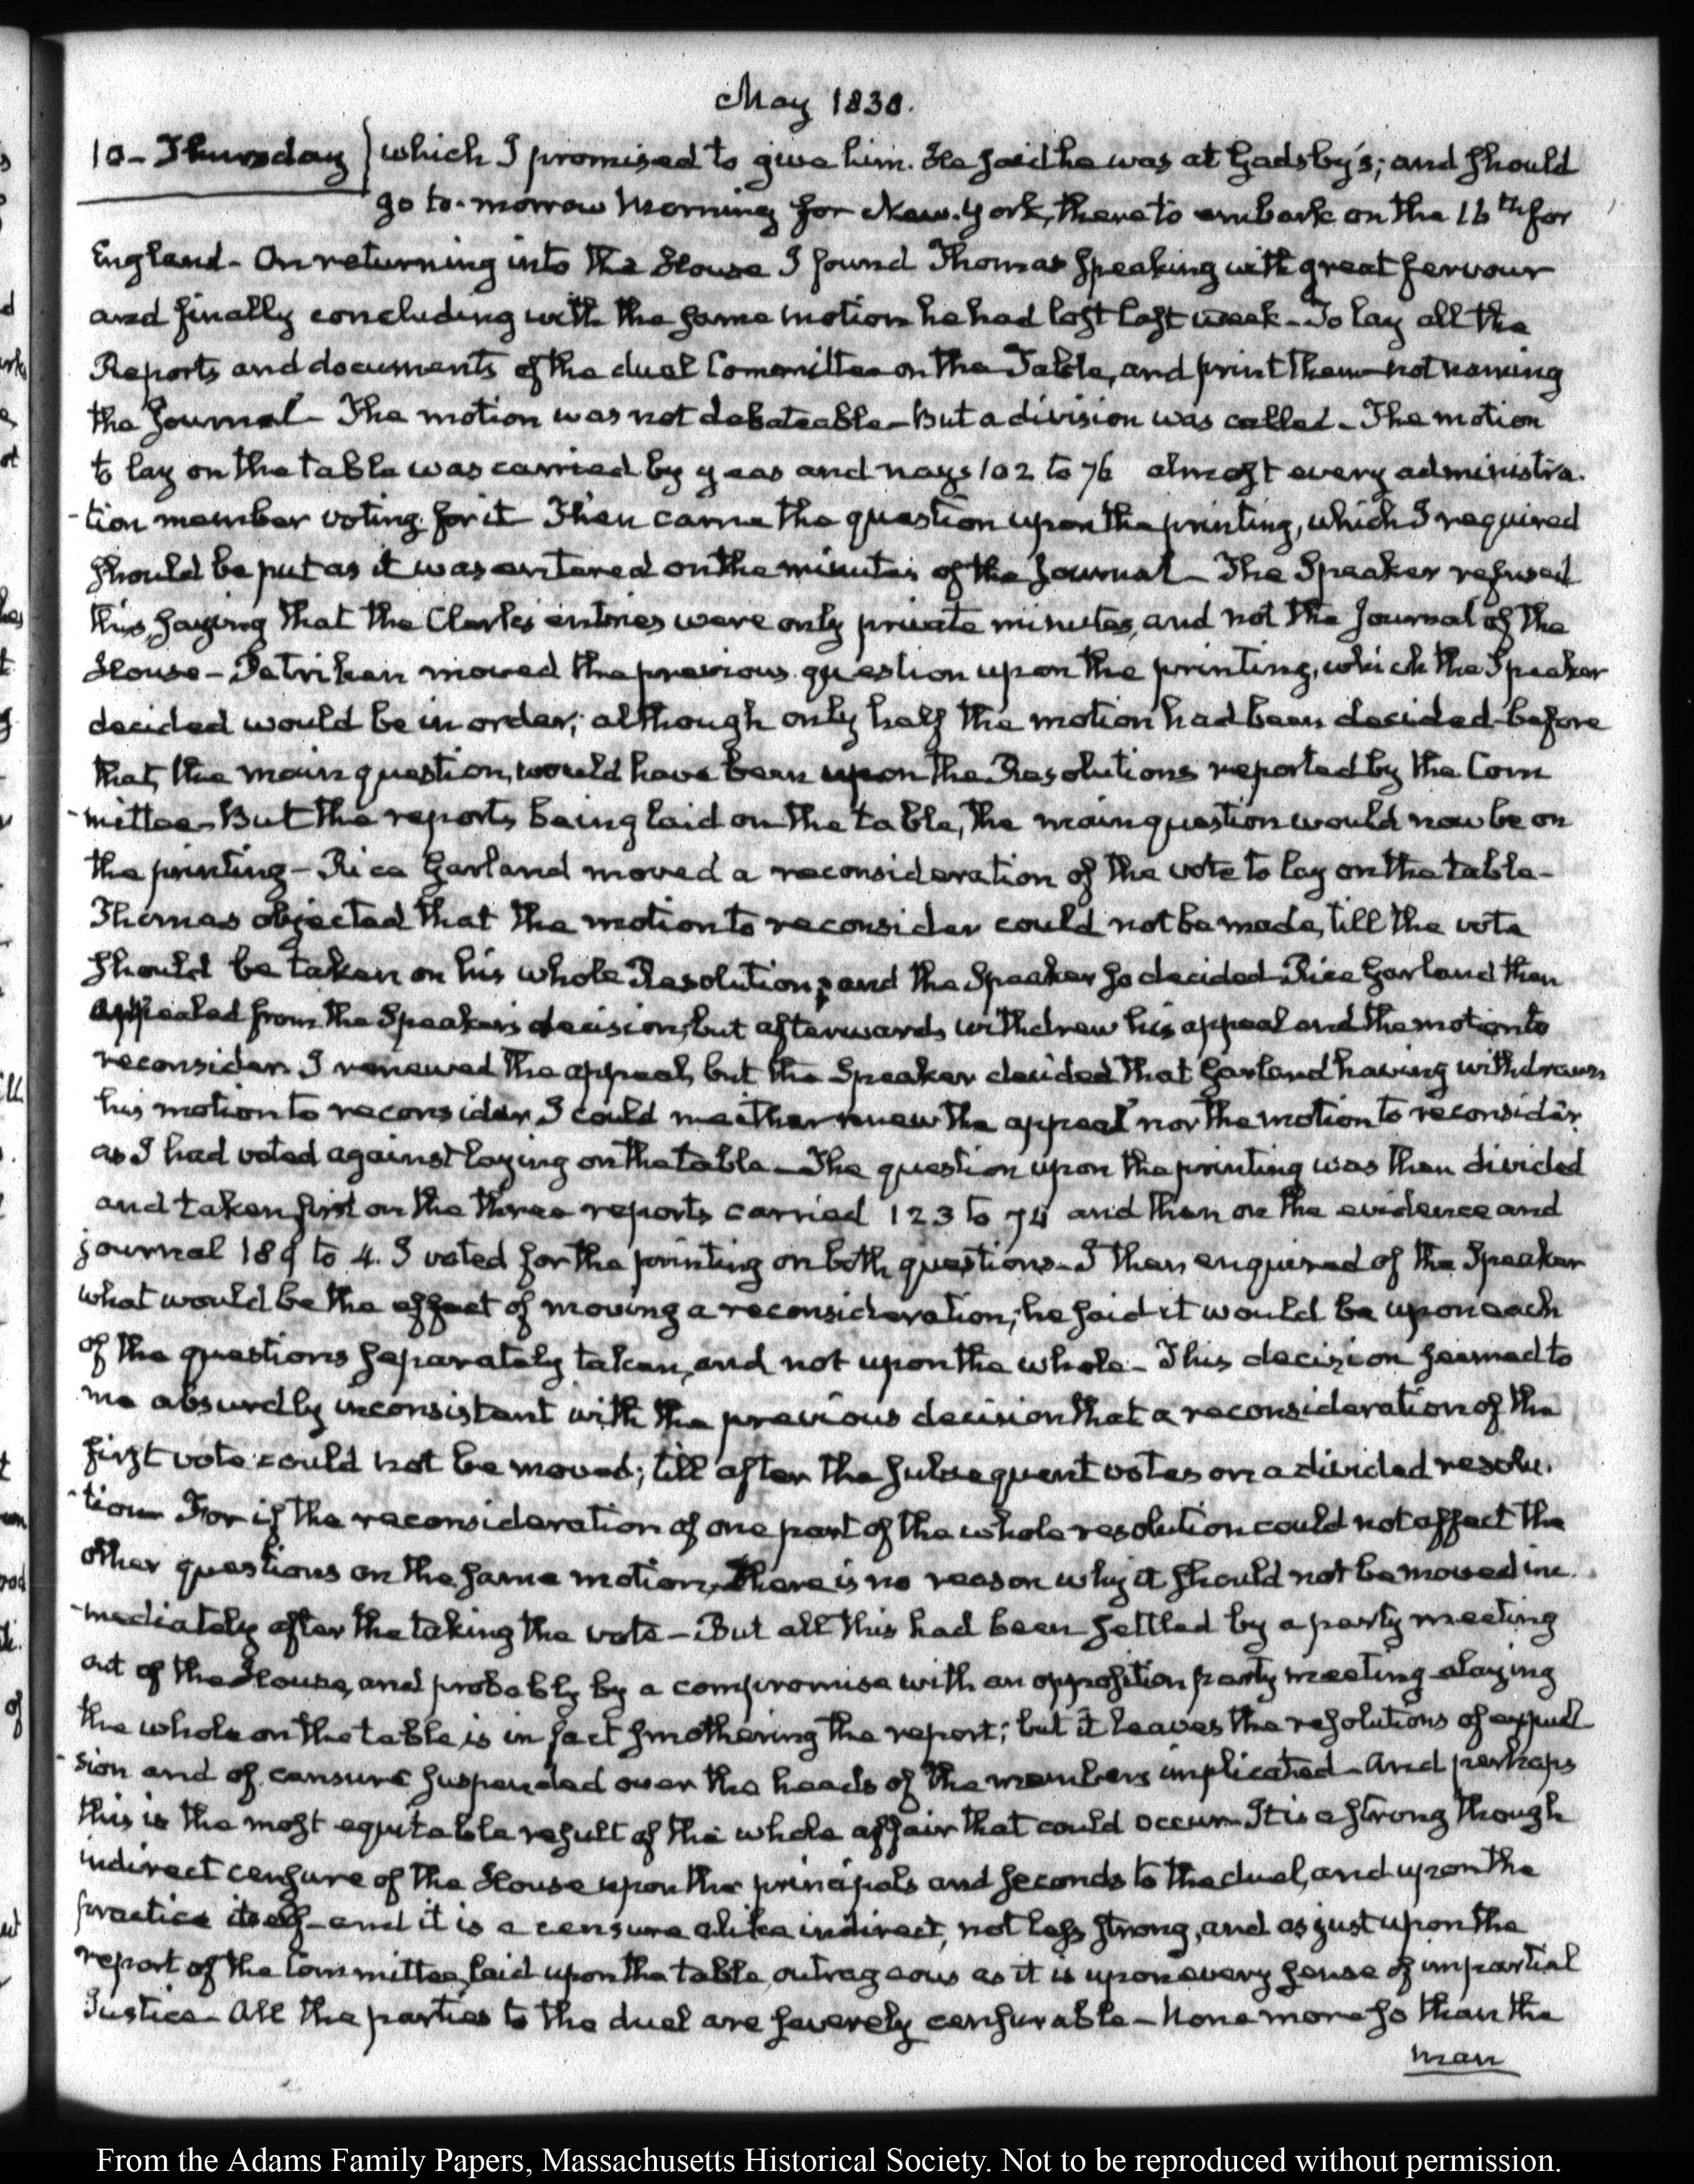 May 1838.
10- Thursday } which I promised to give him. He said he was at Gadsby's; and should
go to-morrow Morning for New-York, there to embark on the 16th for
England- On returning into the House I found Thomas speaking with great fervour
and finally concluding with the same motion he had lost last week- To lay all the
Reports and documents of the duel Committee on the Table, and print them- not naming
the Journal- The motion was not debateable- But a division was called- The motion
to lay on the table was carried by yeas and nays 102 to 76 almost every administra-
-tion member voting for it- Then came the question upon the printing, which I required
should be put as it was entered on the minutes of the Journal- The Speaker refused
this, saying that the Clerk's entries were only private minutes, and not the Journal of the
House- Petriken moved the previous question upon the printing, which the Speaker
decided would be in order; although only half the motion had been decided- before
that, the main question, would have been upon the Resolutions reported by the Com
-mittee- But the reports being laid on the table, the main question would now be on
the printing- Rice Garland moved a reconsideration of the vote to lay on the table-
Thomas objected that the motion to reconsider could not be made, till the vote
should be taken on his whole Resolution; and the Speaker so decided- Rice Garland then
appealed from the Speaker's decision, but afterwards withdrew his appeal and the motion to
reconsider. I renewed the appeal, but the Speaker decided that Garland having withdrawn
his motion to reconsider, I could neither renew the appeal nor the motion to reconsider,
as I had voted against laying on the table- The question upon the printing was then divided
and taken first on the three reports carried 123 to 74 and then on the evidence and
journal 189 to 4. I voted for the printing on both questions- I then enquired of the Speaker
what would be the effect of moving a reconsideration; he said it would be upon each
of the questions separately taken, and not upon the whole- This decision seemed to
me absurdly inconsistent with the previous decision that a reconsideration of the
first vote could not be moved; till after the subsequent votes on a divided resolu-
-tion- For if the reconsideration of one part of the whole resolution could not affect the
other questions on the same motion, there is no reason why it should not be moved im-
-mediately after the taking the vote- But all this had been settled by a party meeting
out of the House, and probably by a compromise with an opposition party meeting- laying
the whole on the table, is in fact smothering the report; but it leaves the resolutions of expul
-sion and of censure suspended over the heads of the members implicated- And perhaps
this is the most equitable result of the whole affair that could occur- It is a strong though
indirect censure of the House upon the principals and seconds to the duel, and upon the
practice itself- and it is a censure alike indirect, not less strong, and as just upon the
report of the Committee, laid upon the table, outrageous as it is upon every sense of impartial
Justice- All the parties to the duel are severely censurable- None more so than the
man
From the Adams Family Papers, Massachusetts Historical Society. Not to be reproduced without permission.